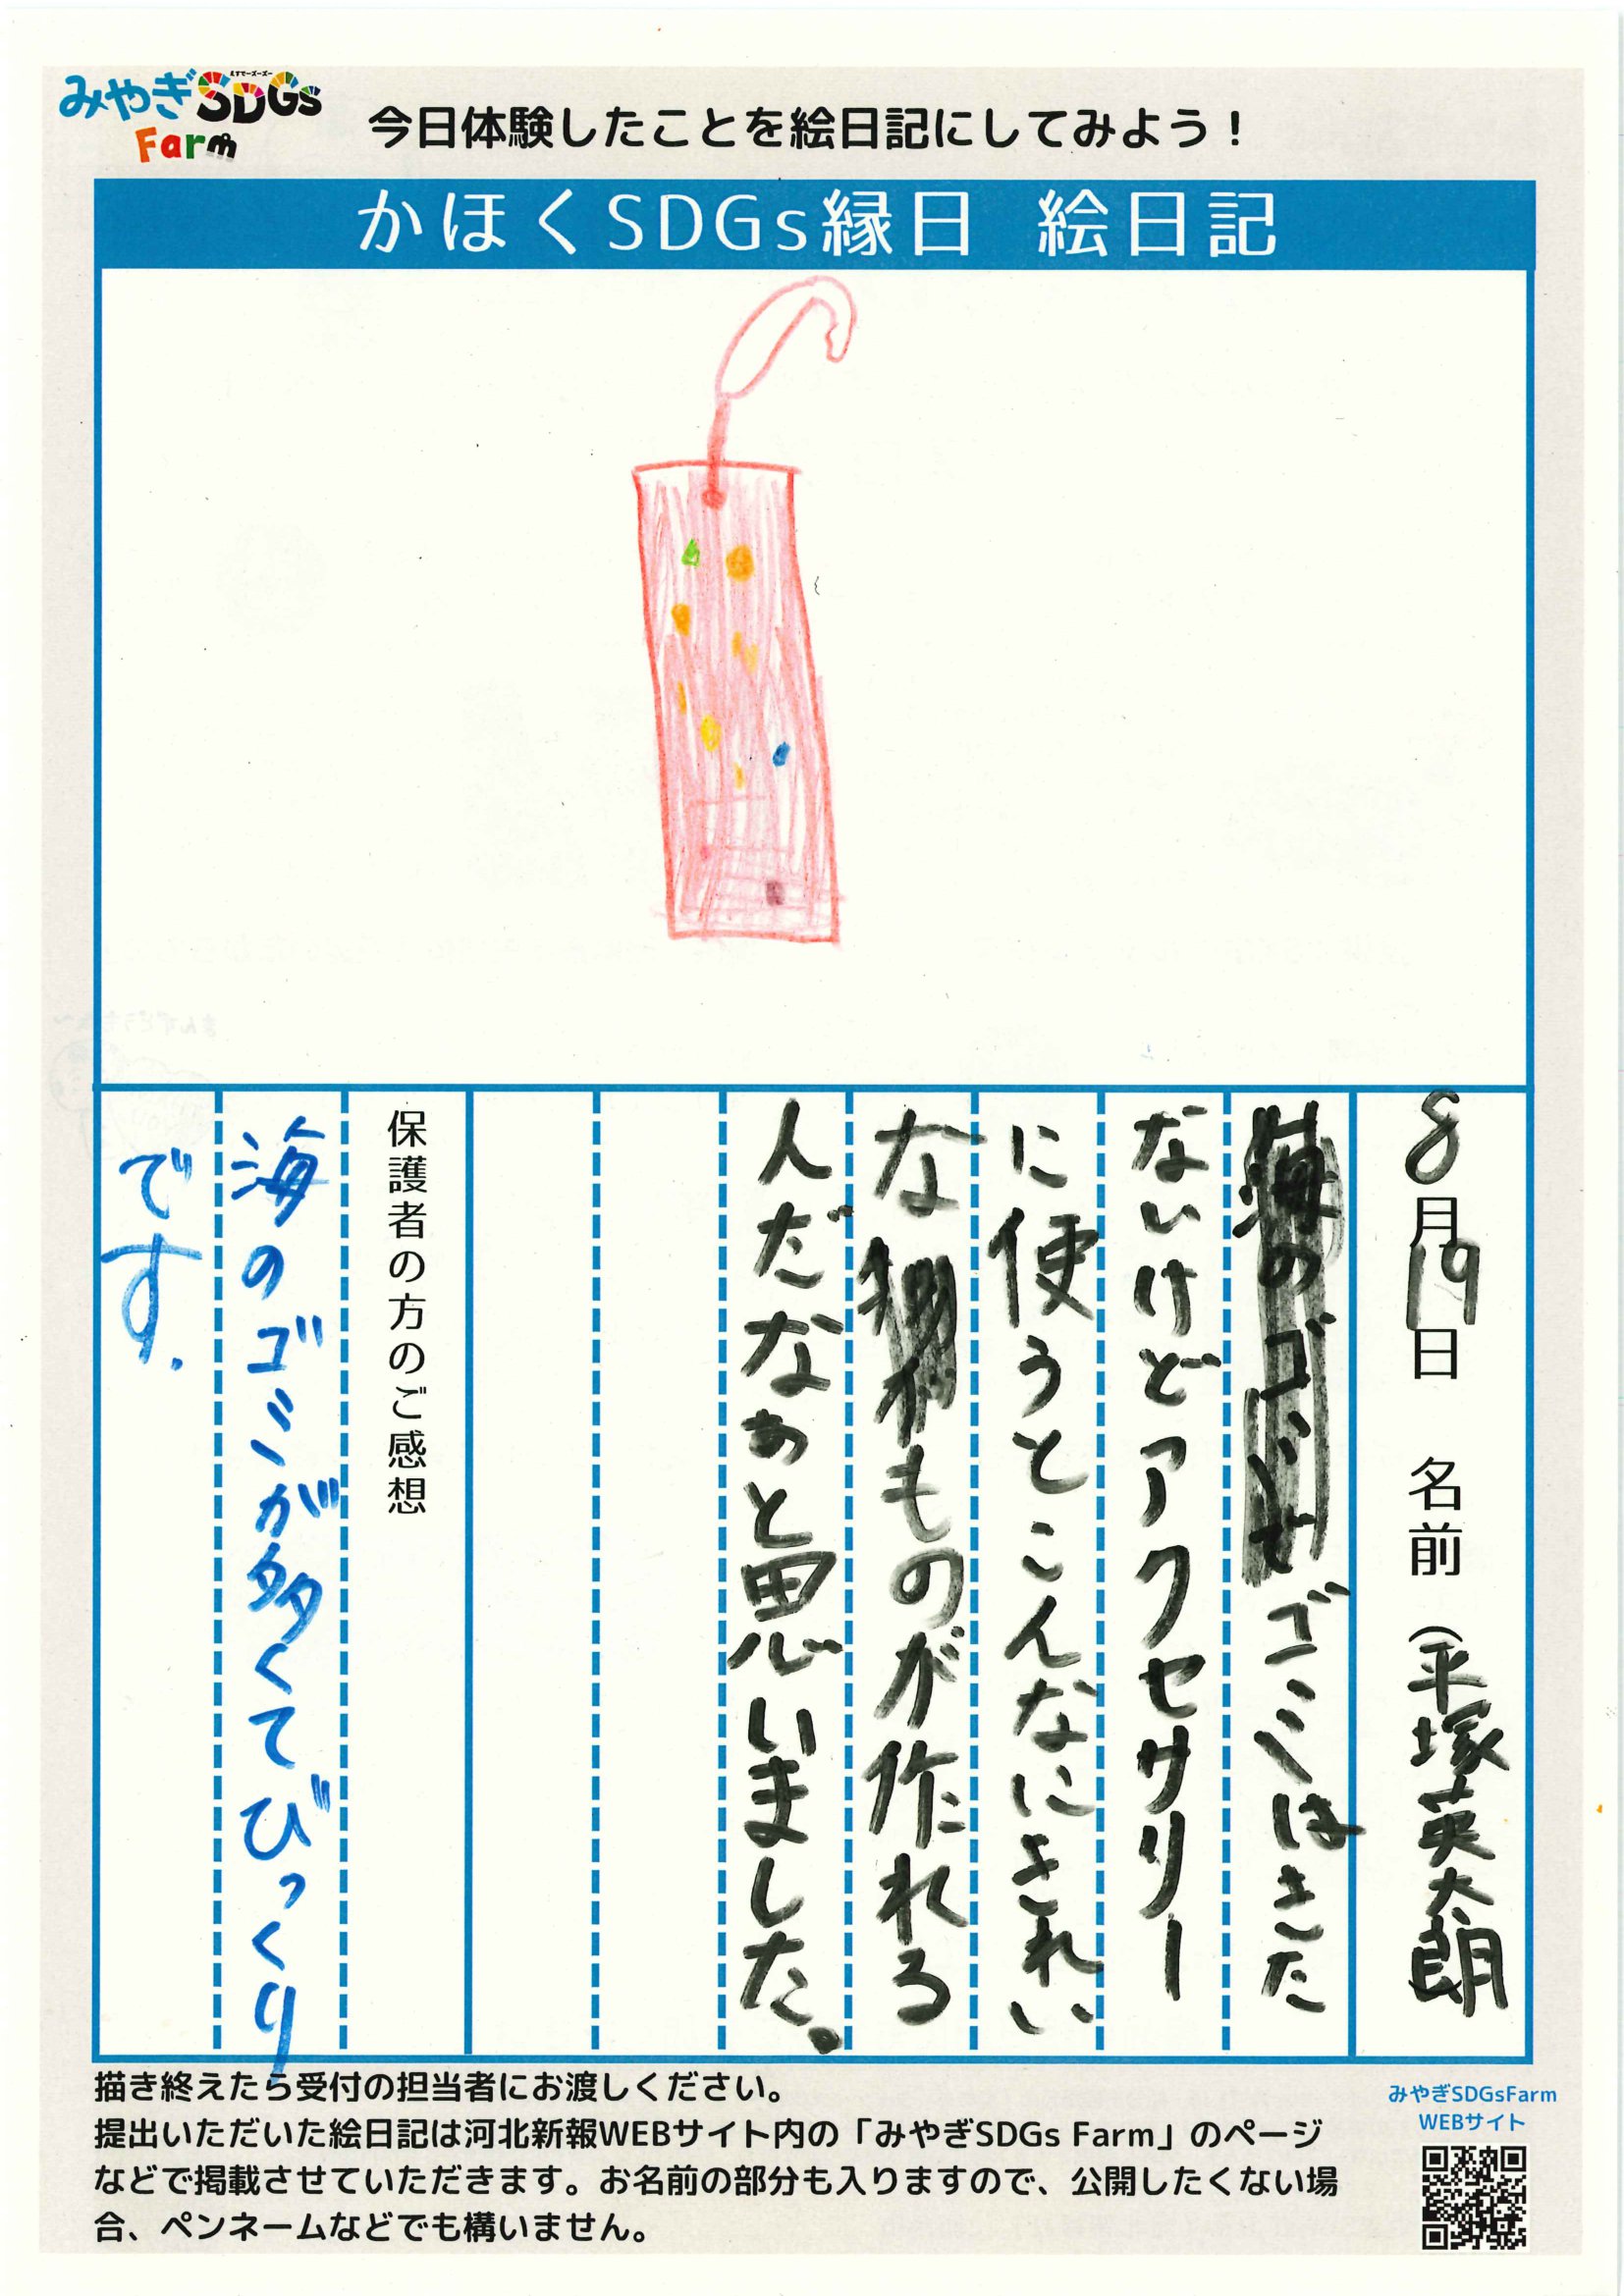 みやぎSDGs
えすでーずーず
Farm
今日体験したことを絵日記にしてみよう！
かほくSDGs縁日 絵日記
8月19日 名前（平塚英太朗
ゴミはきた
ないけどアクセサリー
に使うとこんなにきれい
なものが作れる
んだなぁと思いました。
保護者の方のご感想
海のゴミが多くてびっくり
です.
描き終えたら受付の担当者にお渡しください。
提出いただいた絵日記は河北新報WEBサイト内の「みやぎSDGs Farm」のページ
などで掲載させていただきます。お名前の部分も入りますので、公開したくない場
合、ペンネームなどでも構いません。
みやぎSDGsFarm
WEBサイト